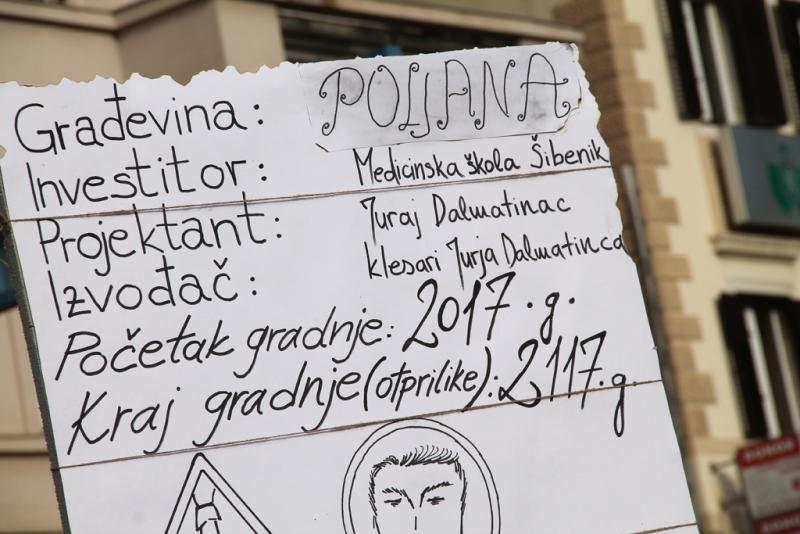 Građevina: POLJANA
Investitor: Medicinska škola Šibenik
Projektant: Juraj Dalmatinac
Izvođač: klesari Jurja Dalmatinca
Početak gradnje: 2017.g.
Kraj gradnje (otprilike): 2117.g.